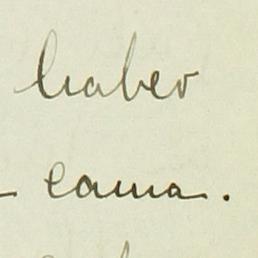 haber
- cama.